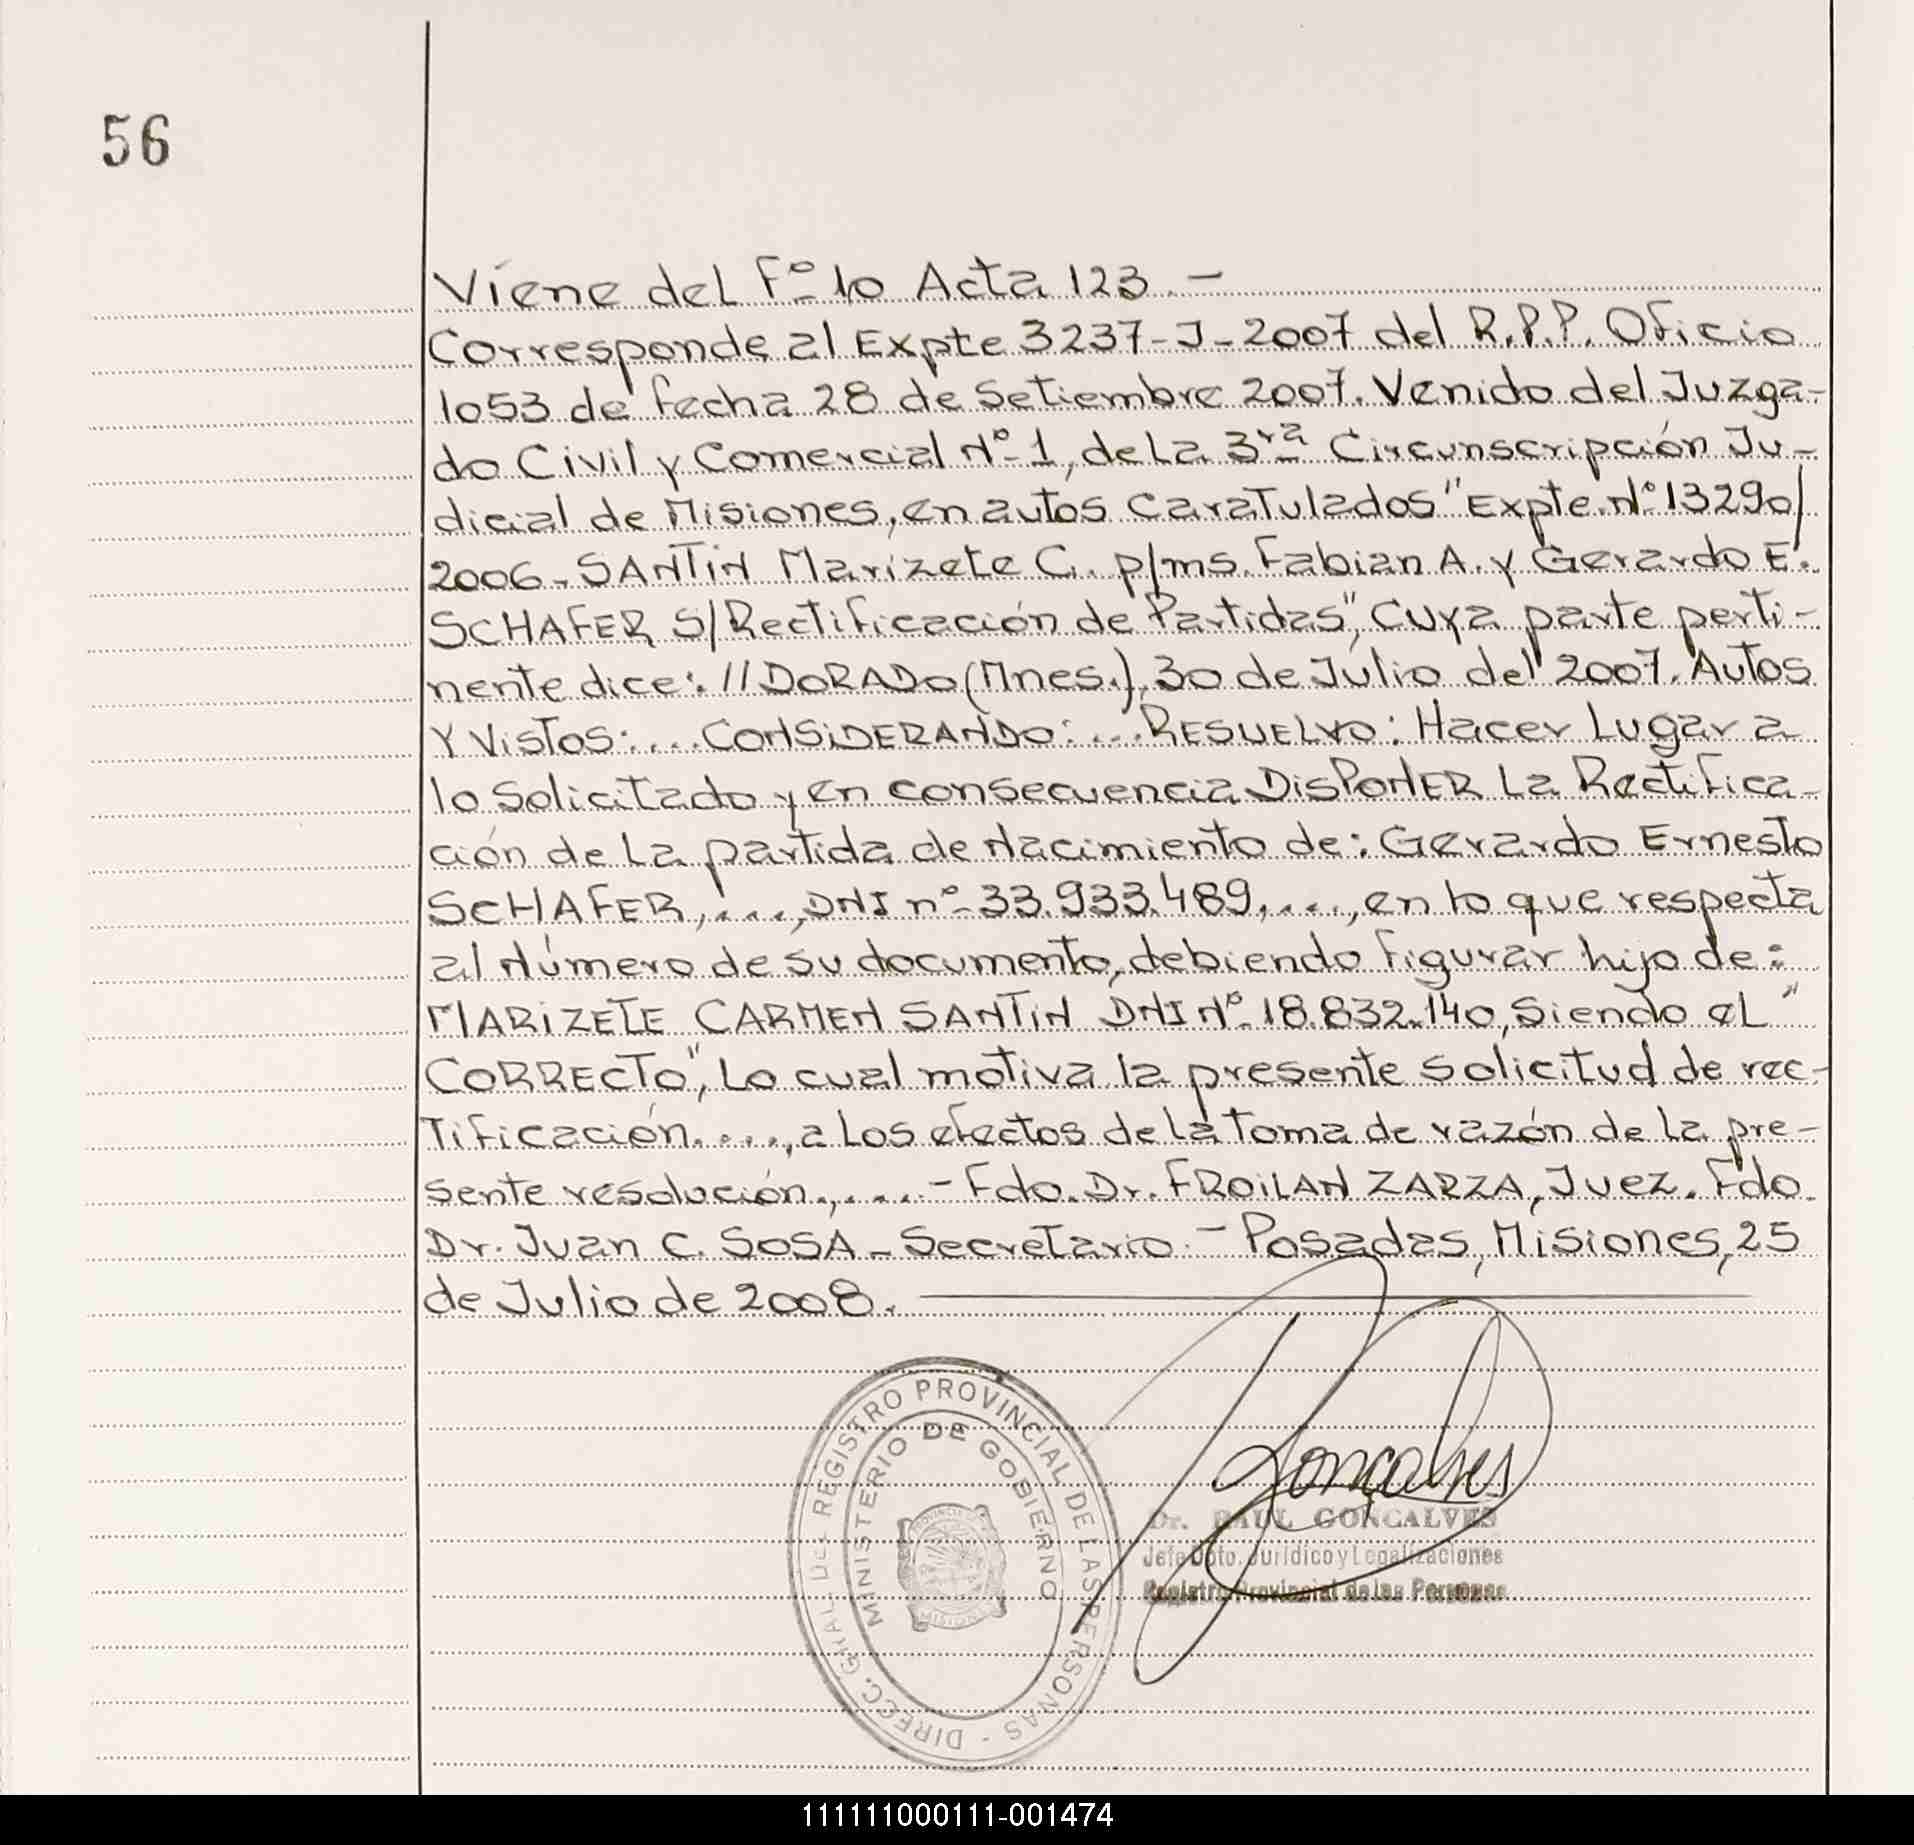 56
Viene del Fº 10 Acta 123.-
Corresponde al Expte 3237-J-2007 del R.P.P. Oficio
1053 de fecha 28 de Setiembre 2007. Venido del Juzga-
do Civil y Comercial Nº 1, de La 3ra Circunscripción Ju-
dicial de Misiones, en autos caratulados "Expte. nº 13290/
2006-SANTIN Marizete C. p/ms. Fabian A. y Gerardo E.
SCHAFER S/Rectificación de Partidas", Cuya parte perti-
nente dice: //DORADO (Mnes.), 30 de Julio del 2007. Autos
Y Vistos:....CONSIDERANDO:....RESUELVO: Hacer Lugar a
lo solicitado y en consecuencia DISPONER La Rectifica-
ción de La partida de Nacimiento de: Gerardo Ernesto
SCHAFER,....,DNI nº 33.933.489,....,en lo que respecta
al Número de su documento, debiendo figurar hijo de:
MARIZETE CARMEN SANTIN DNI Nº 18.832.140, Siendo eL "
CORRECTO", Lo cual motiva la presente solicitud de rec-
Tificación....., a Los efectos de la Toma de razón de la pre-
sente resolución.,....- Fdo. Dr. FROILAN ZARZA, Juez. Fdo.
Dr. Juan C. SOSA - Secretario.- Posadas, Misiones, 25
de Julio de 2008.
DIRECC. GRAL. DEL REGISTRO PROVINCIAL DE LAS PERSONAS -
MINISTERIO DE GOBIERNO
PROVINCIA DE
MISIONES
Goncalves
Dr. RAUL GONCALVES
Jefe Dpto. Jurídico y Legalizaciones
Registro Provincial de las Personas
111111000111-001474